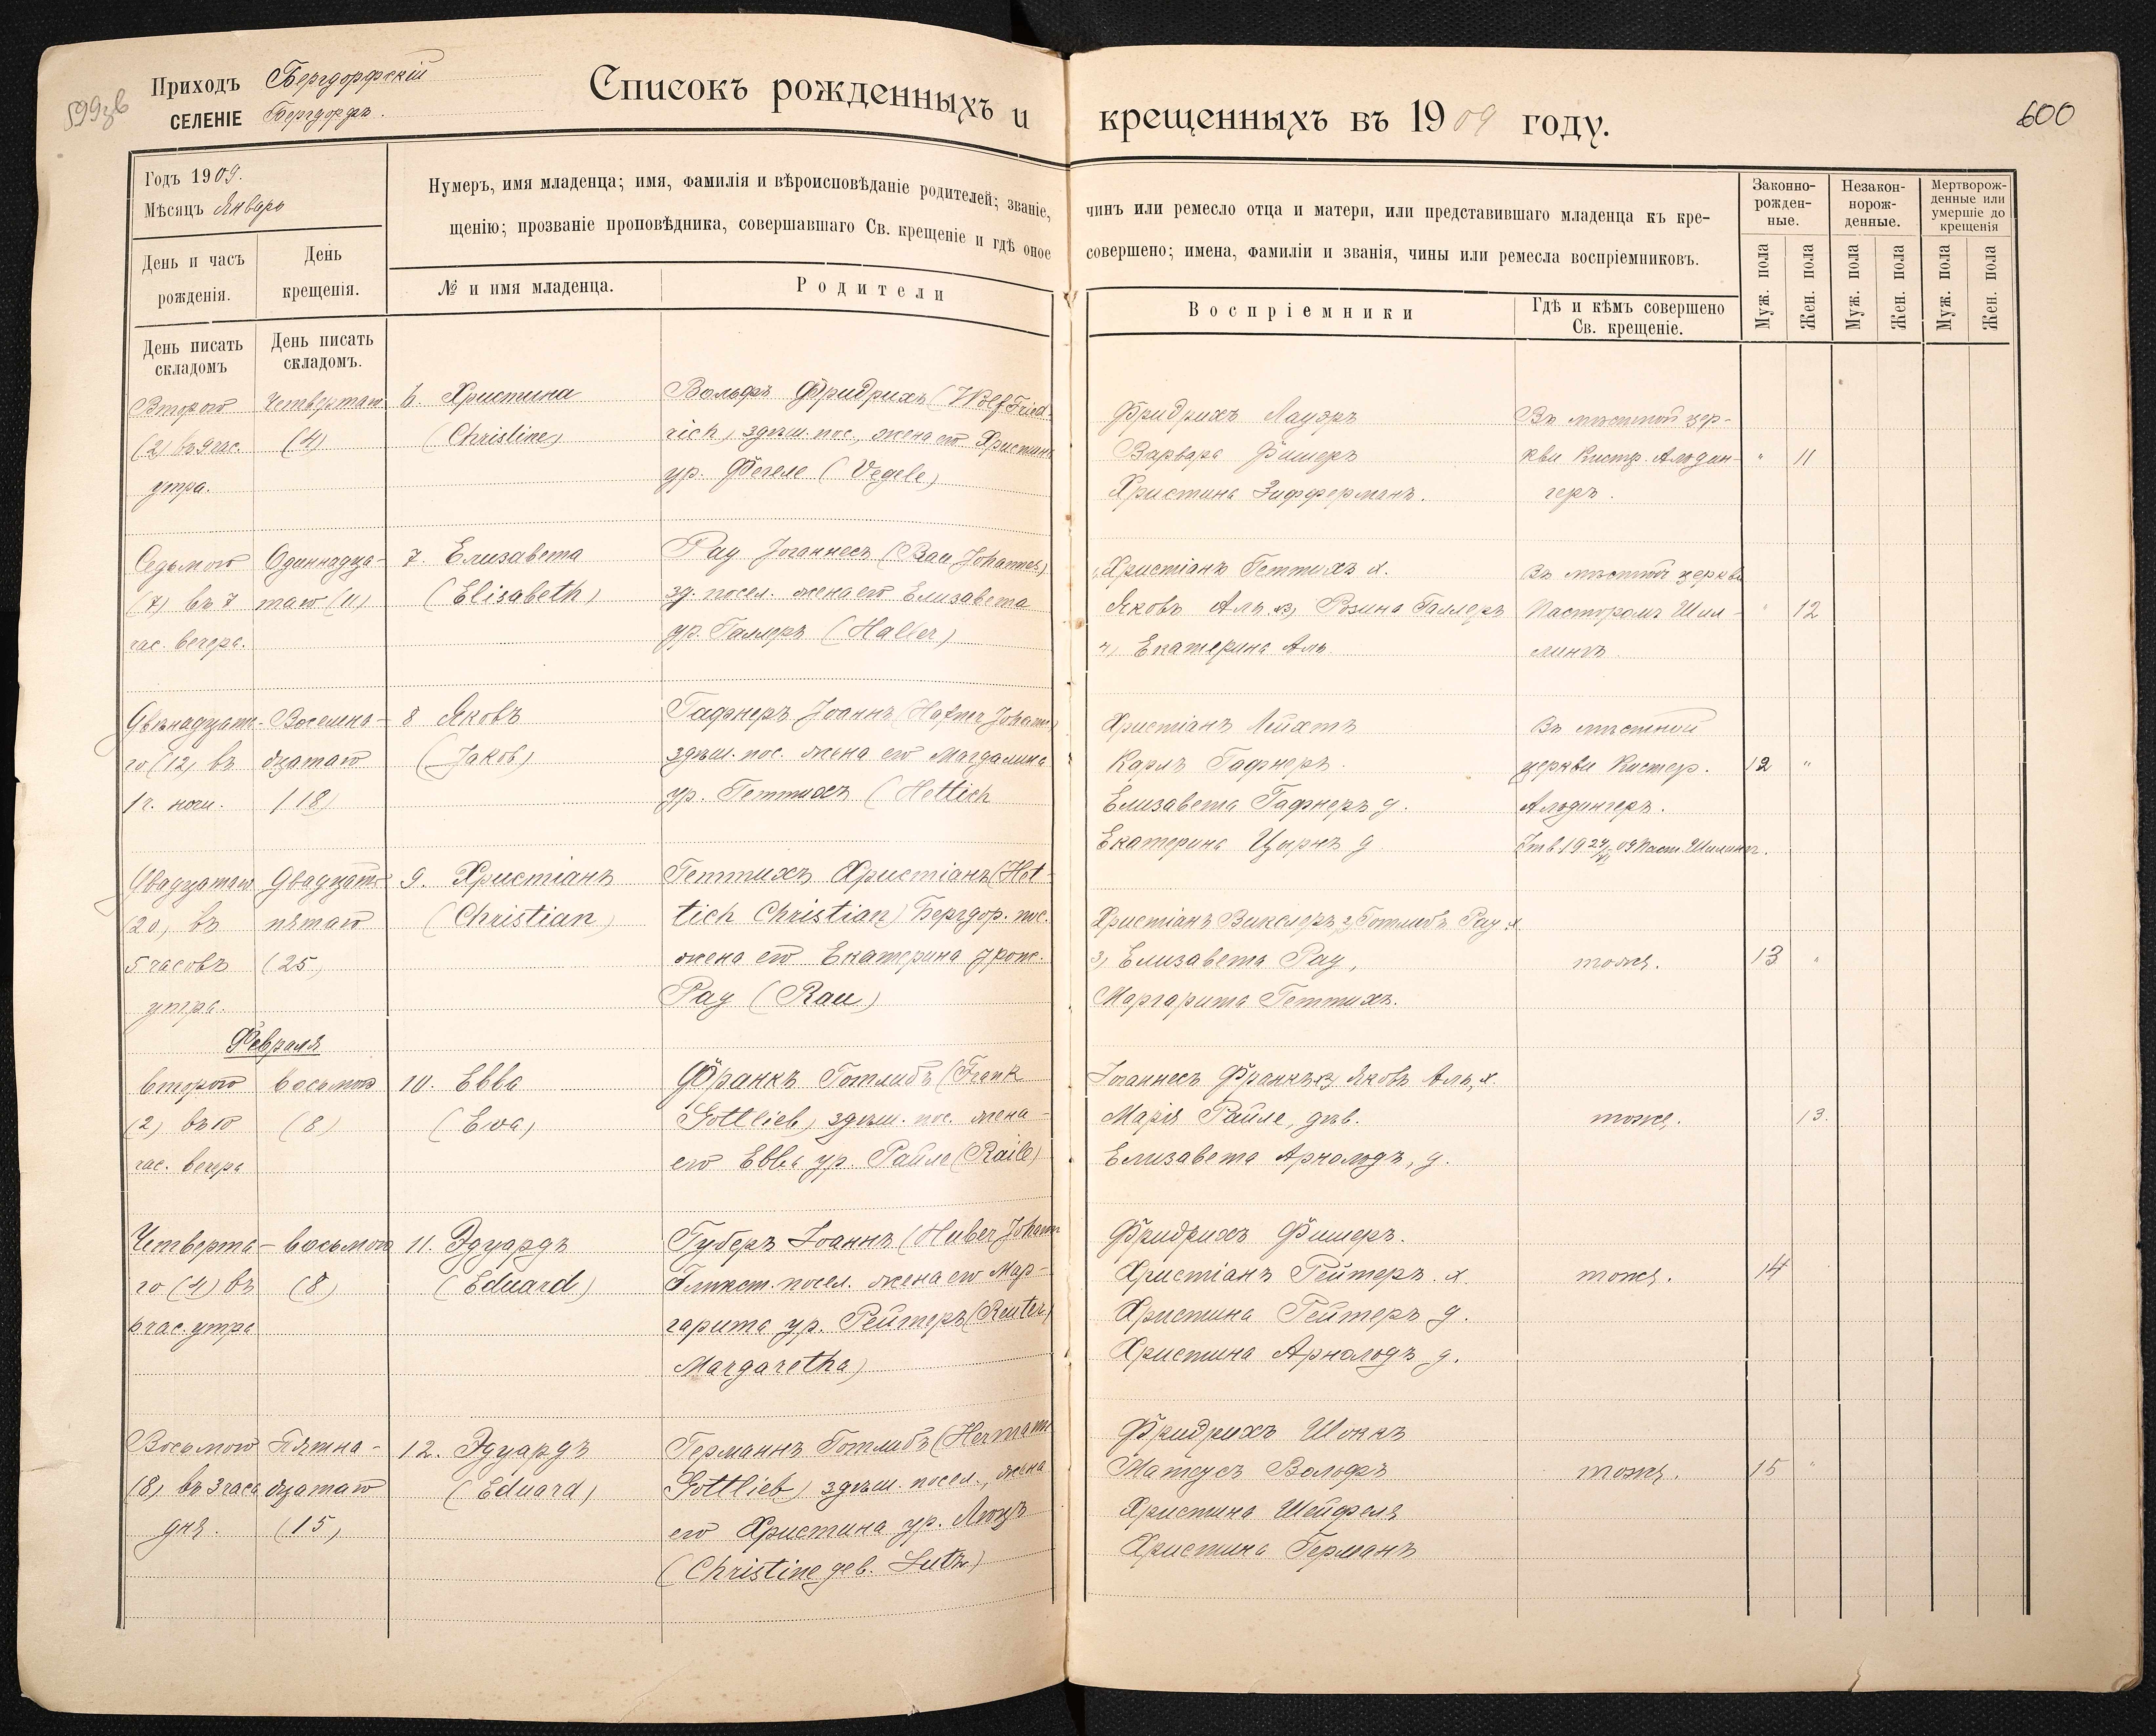 599об
Приходъ Бергдорфскій
СЕЛЕНІЕ Бергдорфъ.
Списокъ рожденныхъ и крещенныхъ въ 1909 году.
600
Годъ 1909.
Мѣсяцъ Январь
День и часъ рожденія.
День крещенія.
Нумеръ, имя младенца; имя, фамилія и вѣроисповѣданіе родителей; званіе, чинъ или ремесло отца и матери, или представившаго младенца къ кре-
щенію; прозваніе проповѣдника, совершавшаго Св. крещеніе и гдѣ оное совершено; имена, фамиліи и званія, чины или ремесла воспріемниковъ.
№ и имя младенца.
Родители
Воспріемники
Гдѣ и кѣмъ совершено Св. крещеніе.
Законно-рожден-ные.
Незакон-норож-денные.
Мертворож-денные или умершіе до крещенія
Муж. пола
Жен. пола
Муж. пола
Жен. пола
Муж. пола
Жен. пола
День писать складомъ
День писать складомъ.
Второго
(2) въ 9 час.
утра.
Четвертаго
(4)
6. Христина
(Christine)
Вольфъ Фридрихъ (Wolf Fried-
rich) здѣш. пос., жена его Христина
ур. Фегеле (Vegele)
Фридрихъ Лауэръ
Варвара Фишеръ
Христина Зифферманъ.
Въ мѣстной цер-
кви Кистр. Алодин-
геръ.
" 11
Седьмого
(7) въ 7
час. вечера.
Одиннадца-
таго (11)
7. Елизавета
(Elisabeth)
Рау Іоганнесъ (Rau Johannes)
зд. посел. жена его Елизавета
ур. Галлеръ (Haller)
Христіанъ Геттихъ х.
Яковъ Аль х 3) Розина Галлеръ
4) Екатерина Аль
Въ мѣстной церкви
Пасторомъ Шил-
лингъ
" 12
Двѣнадцата-
го (12) въ
1 ч. ночи.
Восемна-
дцатаго
(18)
8 Яковъ
(Jakob)
Гафнеръ Іоаннъ (Hafner Johann)
здѣш. пос. жена его Магдалина
ур. Геттихъ (Hettich
Христіанъ Лейхтъ
Карлъ Гафнеръ.
Елизавета Гафнеръ д.
Екатерина Цырнъ д
Въ мѣстной
церкви Кистер.
Алодингеръ.
12 "
Двадцатаго
(20) въ
5 часовъ
утра.
Двадцать
пятаго
(25)
9. Христіанъ
(Christian)
Геттихъ Христіанъ (Het-
tich Christian) Бергдор. пос.
жена его Екатерина урож.
Рау (Rau)
Христіанъ Викслеръ 2) Готлибъ Рау х
3) Елизавета Рау,
Маргарита Геттихъ.
тоже.
13 "
Февраля
второго
(2) въ 10
час. вечера
восьмого
(8)
10. Евва
(Ewa)
Франкъ Готлибъ (Frank
Gottlieb) здѣш. пос. жена
его Евва ур. Райле (Raile)
Іоганнесъ Франкъ х 2) Яковъ Аль, х.
Марія Райле, дѣв.
Елизавета Арнольдъ, д.
тоже.
13.
Четверта-
го (4) въ
6 час. утра
восьмого
(8)
11. Эдуардъ
(Eduard)
Губеръ Іоаннъ (Huber Johann
Гликст. посел. жена его Мар-
гарита ур. Рейтеръ (Reuter
Margaretha)
Фридрихъ Фишеръ.
Христіанъ Рейтеръ. х.
Христина Рейтеръ д.
Христина Арнольдъ д.
тоже.
14
Восьмого
(8) въ 3 часа
дня.
Пятна-
дцатаго
(15)
12. Эдуардъ
(Eduard)
Германнъ Готлибъ (Hermann
Gottlieb) здѣш. посел., жена
его Христина ур. Лютцъ
(Christine geb. Lutz)
Фридрихъ Шокъ
Матеусъ Вольфъ
Христина Шейфеля
Христина Германъ
тоже.
15 "